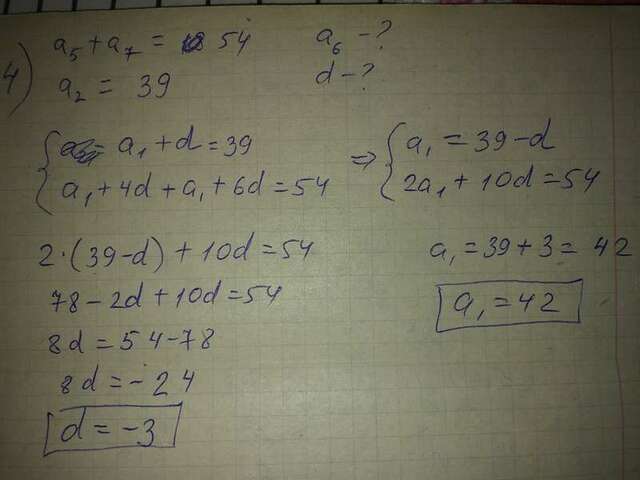 4)
a₅ + a₇ = 54 a₆ - ?
a₂ = 39 d - ?
a₁ + d = 39 => a₁ = 39 - d
a₁ + 4d + a₁ + 6d = 54 2a₁ + 10d = 54
2·(39-d) + 10d = 54 a₁ = 39 + 3 = 42
78 - 2d + 10d = 54 a₁ = 42
8d = 54 - 78
8d = -24
d = -3